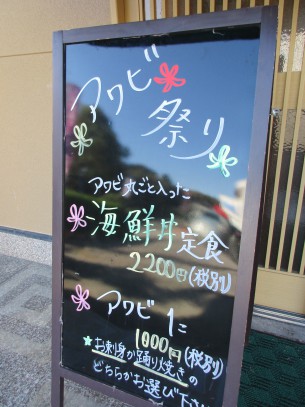 アワビ
祭り
アワビ丸ごと入った
海鮮丼定食
2200円(税別)
アワビ1コ
1000円(税別)
★お刺身か踊り焼きの
どちらかお選び下さい